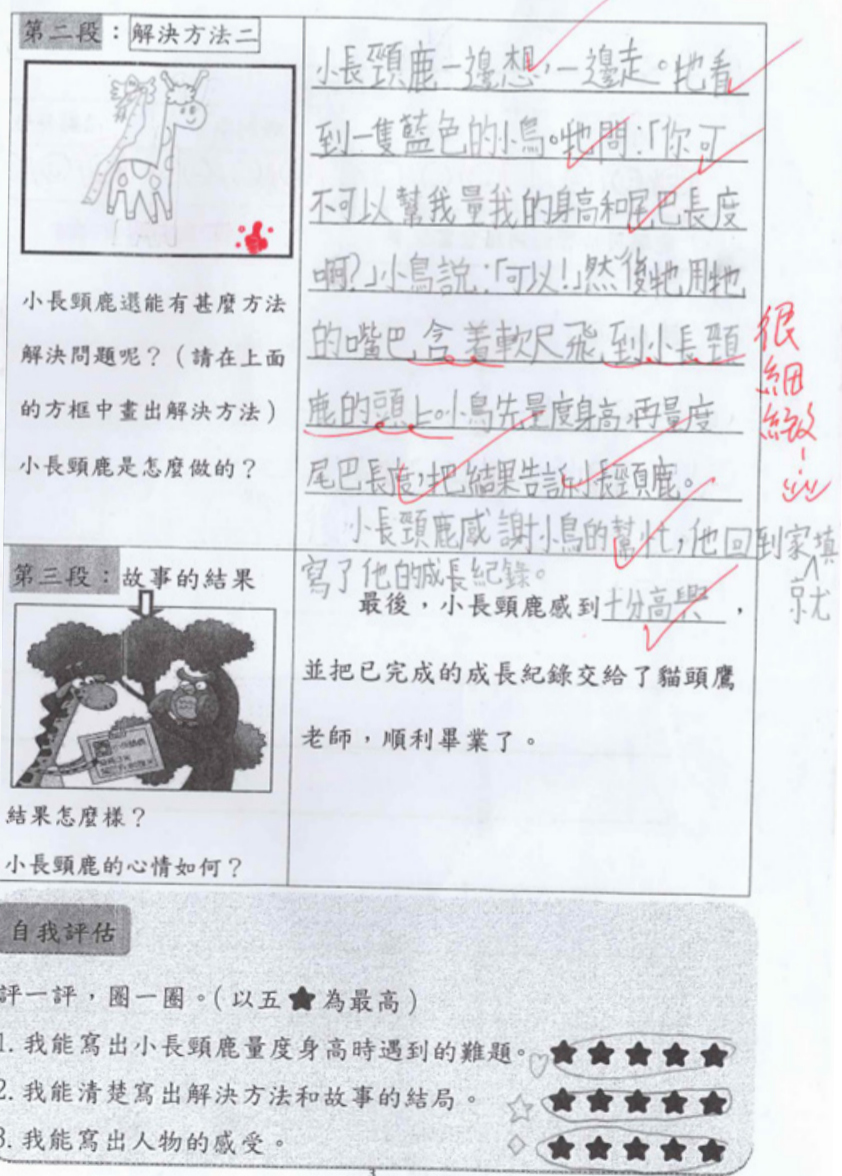 第二段：解決方法二
小長頸鹿還能有甚麼方法
解決問題呢？（請在上面
的方框中畫出解決方法）
小長頸鹿是怎麼做的？
小長頸鹿一邊想，一邊走。牠看
到一隻藍色的小鳥。牠問：「你可
不可以幫我量我的身高和尾巴長度
啊？」小鳥說：「可以！」然後牠用牠
的嘴巴含着軟尺飛到小長頸
鹿的頭上。小鳥先量度身高，再量度
尾巴長度，把結果告訴小長頸鹿。
小長頸鹿感謝小鳥的幫忙，他回到家填
就
寫了他的成長紀錄。
很
細
緻
第三段：故事的結果
結果怎麼樣？
小長頸鹿的心情如何？
最後，小長頸鹿感到十分高興，
並把已完成的成長紀錄交給了貓頭鷹
老師，順利畢業了。
自我評估
評一評，圈一圈。（以五★為最高）
1. 我能寫出小長頸鹿量度身高時遇到的難題。★★★★★
2. 我能清楚寫出解決方法和故事的結局。★★★★★
3. 我能寫出人物的感受。★★★★★